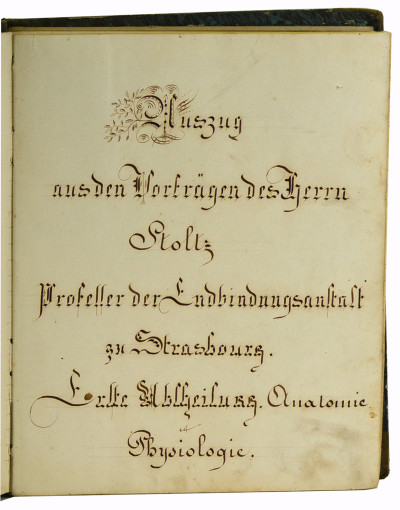 Auszug
aus den Vorträgen des Herrn
Stoltz
Professer der Endbindungsanstalt
zu Strasbourg.
Erste Abtheilung. Anatomie
et
Physiologie.